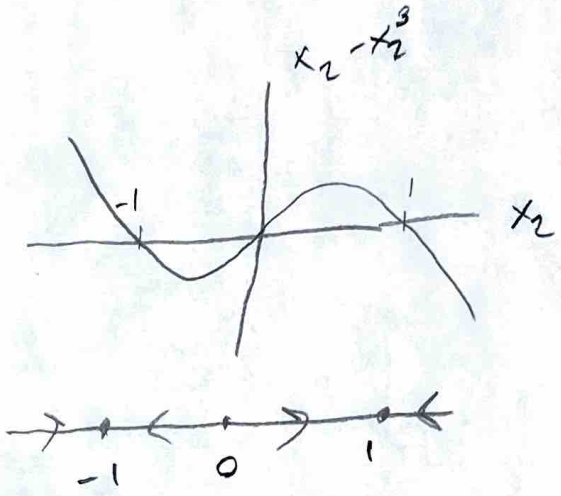 x₂ - x₂³
-1
1
x₂
-1 0 1